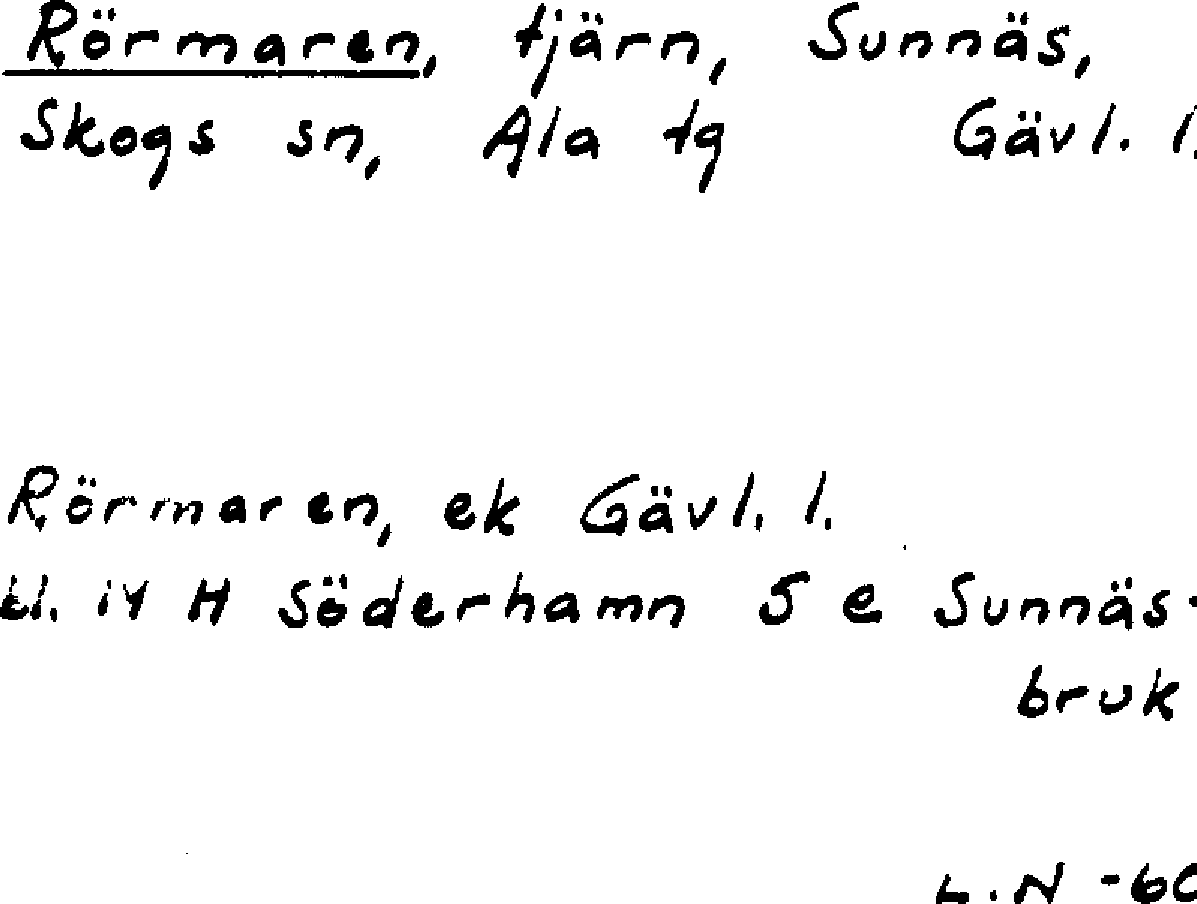 Rörmaren, tjärn, Sunnäs,
Skogs sn, Ala tg Gävl. l.
Rörmaren, ek Gävl. l.
bl. 14 H Söderhamn 5 e Sunnäs-
bruk
L.N -60